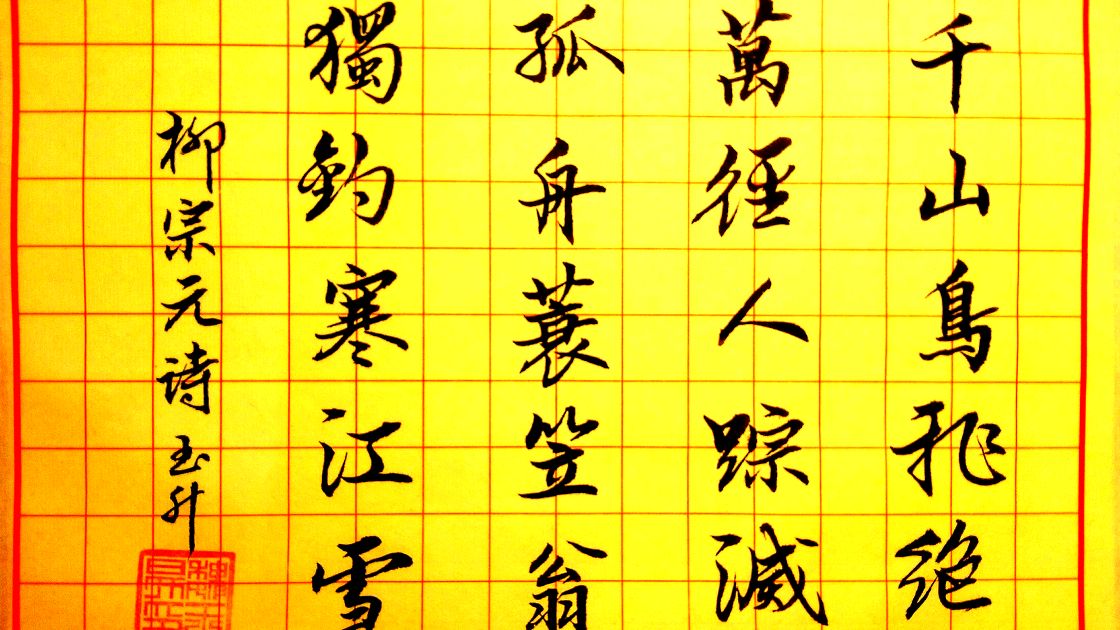 千山鳥飛絶
萬徑人踪滅
孤舟蓑笠翁
獨釣寒江雪
柳宗元诗 玉升